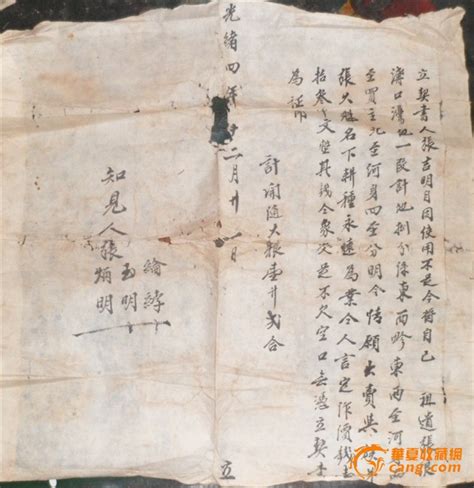 立契書人張吉明目因使用不足今將自己 祖遺張
灣口灣地一段計地捌分係東西畛東西至河
至買主北至河身四至分明今情願出賣與
張大 名下耕種永遠為業今人言定作價錢
拾叁文整其錢今象次足不欠空口無憑立契書
為証
計開隨大糧壹升弍合
光緒四年 十二月廿一日 立
知見人張 繪 玉明 炳明
華夏收藏網
cang.com